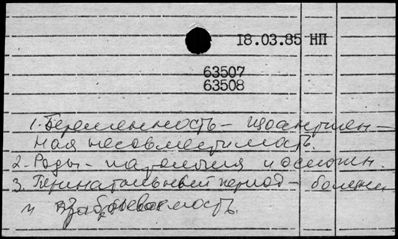 18.03.85 НП
63507
63508
1. Беременность – Изоантиген –
ная несовместимость.
2. Роды – патология и осложн
3. Перинатальный период – болезни
и заболеваемость.